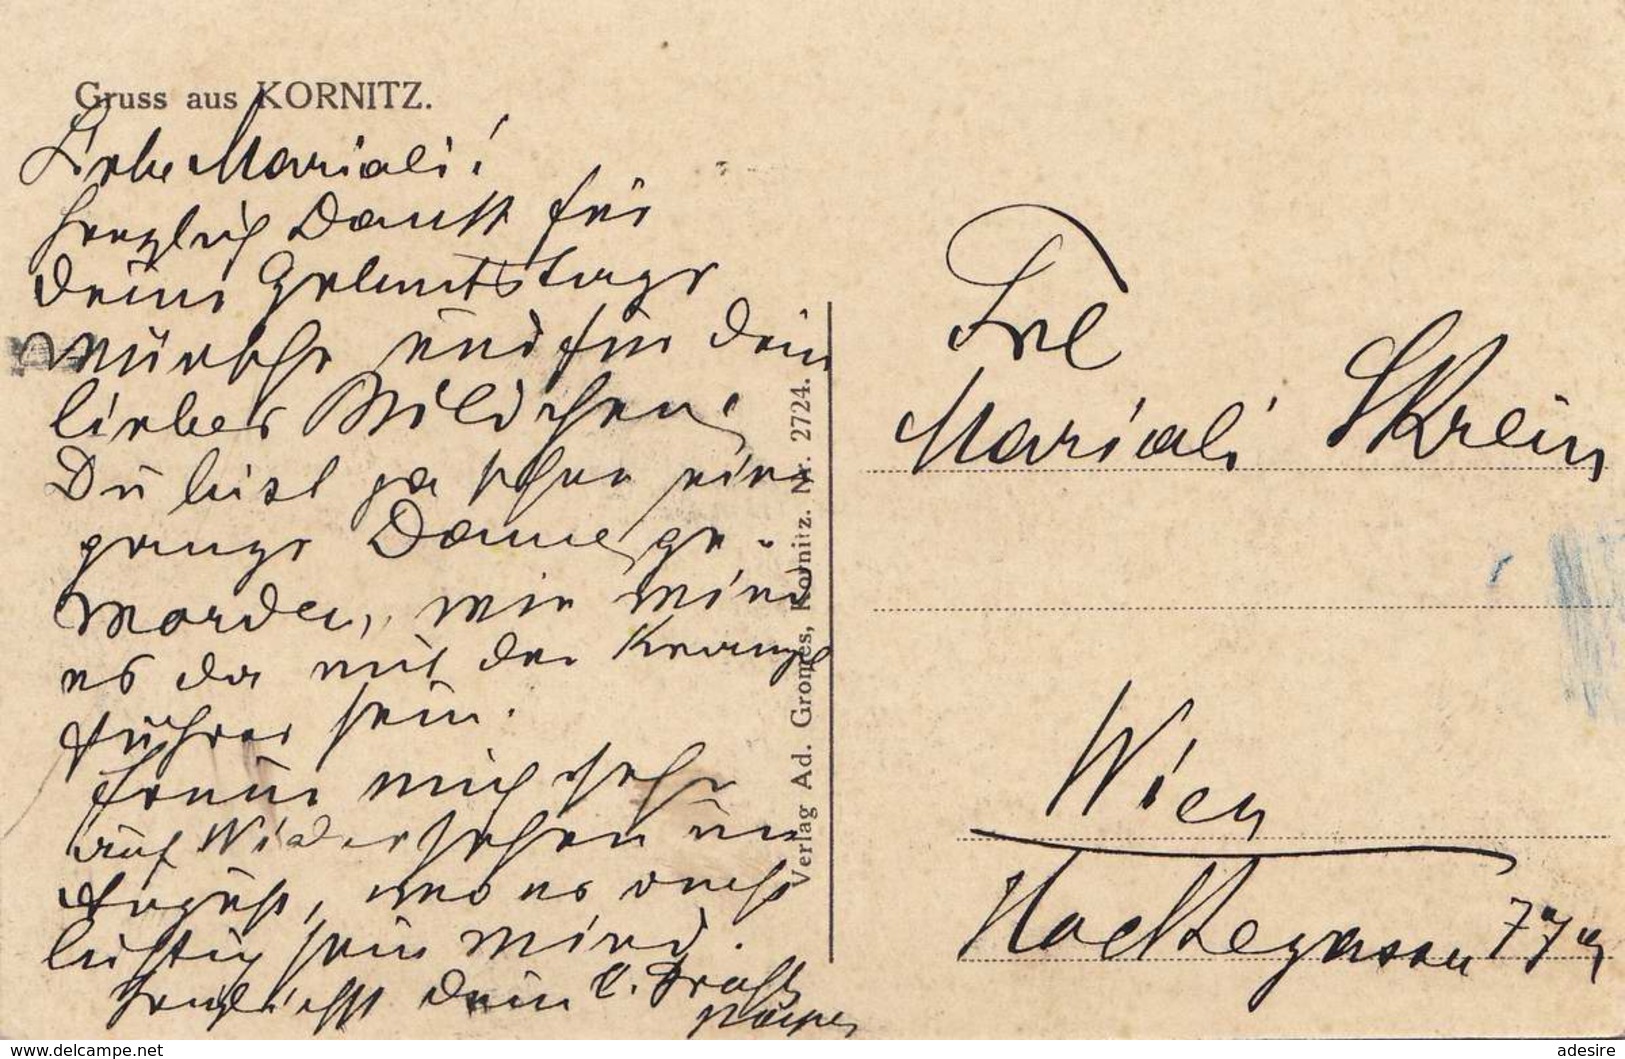 Gruss aus KORNITZ.
Liebe Mariali!
Herzlich Dank für
Deine Geburtstags
wünsche und für Dein
liebes Bildchen,
Du bist ja schon eine
ganze Dame ge-
worden, wie wird
es da mit den Kranzl
führer sein.
Freue mich sehr
auf Wiedersehen im
August, wo es recht
lustig sein wird.
Herzlichst Dein
Verlag Ad. Gromes, Kornitz. Nr. 2724.
Frl
Mariali Skrein
Wien
Hackegasse 77a
www.delcampe.net
adesire